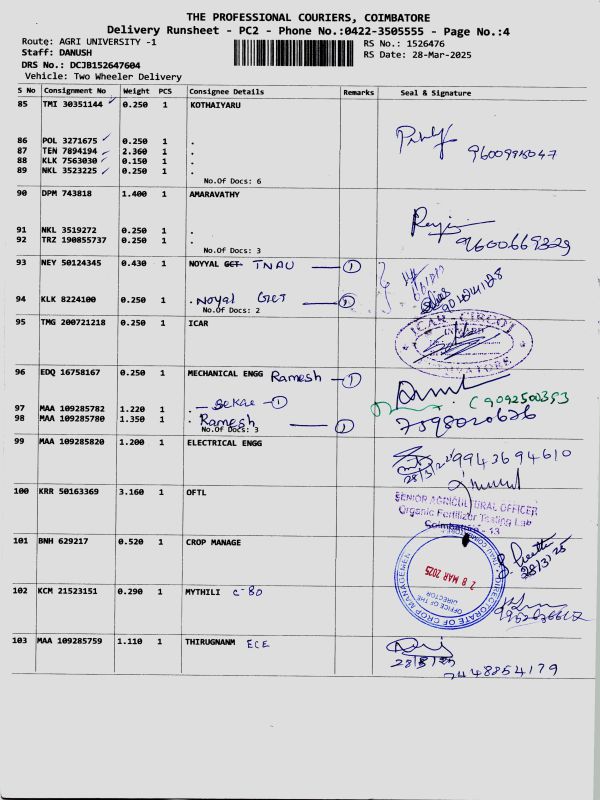 THE PROFESSIONAL COURIERS, COIMBATORE
Delivery Runsheet - PC2 - Phone No.:0422-3505555 - Page No.:4
Route: AGRI UNIVERSITY -1
RS No.: 1526476
Staff: DANUSH
RS Date: 28-Mar-2025
DRS No.: DCJB152647604
Vehicle: Two Wheeler Delivery
S No Consignment No Weight PCS Consignee Details Remarks Seal & Signature
85 TMI 30351144 0.250 1 KOTHAIYARU
86 POL 3271675 0.250 1 .
87 TEN 7894194 2.360 1 .
88 KLK 7563030 0.150 1 .
89 NKL 3523225 0.250 1 .
No.Of Docs: 6
90 DPM 743818 1.400 1 AMARAVATHY
91 NKL 3519272 0.250 1 .
92 TRZ 190855737 0.250 1 .
No.Of Docs: 3
9600669329
93 NEY 50124345 0.430 1 NOYYAL GCT TNAU 1
94 KLK 8224100 0.250 1 . Noyal GCT 1
No.Of Docs: 2
95 TMG 200721218 0.250 1 ICAR
96 EDQ 16758167 0.250 1 MECHANICAL ENGG Ramesh 1
97 MAA 109285782 1.220 1 . 1
98 MAA 109285780 1.350 1 . Ramesh 1
No.Of Docs: 3
7598020626
99 MAA 109285820 1.200 1 ELECTRICAL ENGG
9943694610
100 KRR 50163369 3.160 1 OFTL
SENIOR AGRICULTURAL OFFICER
Organic Fertilizer Testing Lab
Coimbatore - 13
101 BNH 629217 0.520 1 CROP MANAGE
DIRECTORATE OF CROP MANAGEMENT
28 MAR 2025
OFFICE OF THE DIRECTOR
28/3/25
102 KCM 21523151 0.290 1 MYTHILI C-80
103 MAA 109285759 1.110 1 THIRUGNANM ECE
28/3/25